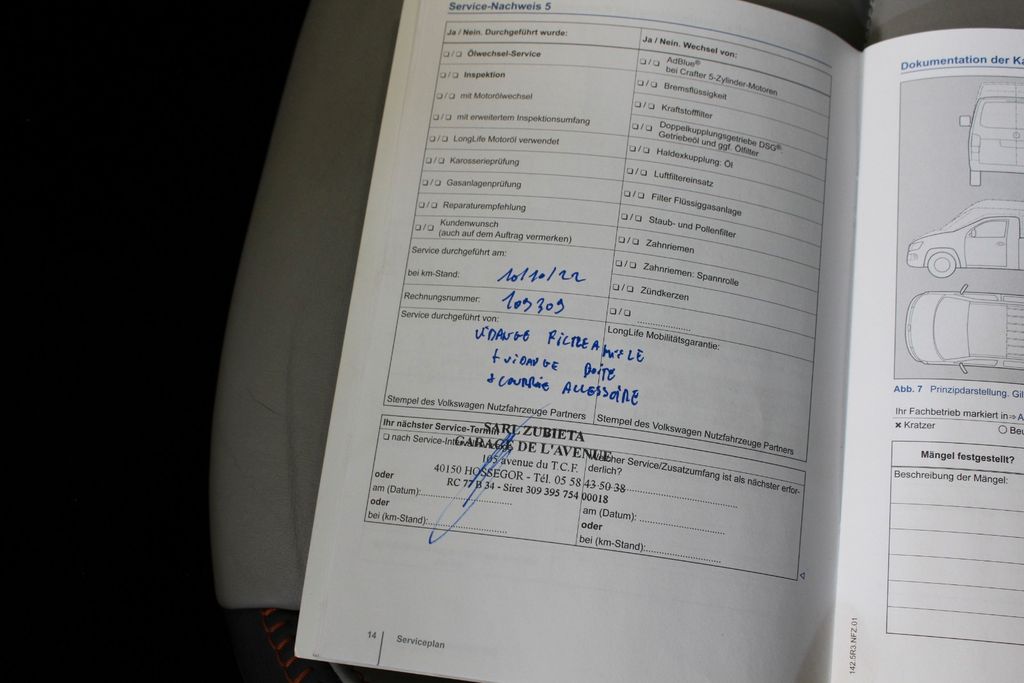 Service-Nachweis 5
Ja / Nein. Durchgeführt wurde:
❏ / ❏ Ölwechsel-Service
❏ / ❏ Inspektion
❏ / ❏ mit Motorölwechsel
❏ / ❏ mit erweitertem Inspektionsumfang
❏ / ❏ LongLife Motoröl verwendet
❏ / ❏ Karosserieprüfung
❏ / ❏ Gasanlagenprüfung
❏ / ❏ Reparaturempfehlung
❏ / ❏ Kundenwunsch
(auch auf dem Auftrag vermerken)
Service durchgeführt am:
10/10/22
bei km-Stand:
109309
Rechnungsnummer:
Service durchgeführt von:
VIDANGE FILTRE A HUILE
+ VIDANGE BOITE
+ COURROIE ACCESSOIRE
Stempel des Volkswagen Nutzfahrzeuge Partners
Ja / Nein. Wechsel von:
❏ / ❏ AdBlue®
bei Crafter 5-Zylinder-Motoren
❏ / ❏ Bremsflüssigkeit
❏ / ❏ Kraftstofffilter
❏ / ❏ Doppelkupplungsgetriebe DSG®:
Getriebeöl und ggf. Ölfilter
❏ / ❏ Haldexkupplung: Öl
❏ / ❏ Luftfiltereinsatz
❏ / ❏ Filter Flüssiggasanlage
❏ / ❏ Staub- und Pollenfilter
❏ / ❏ Zahnriemen
❏ / ❏ Zahnriemen: Spannrolle
❏ / ❏ Zündkerzen
❏ / ❏ ....................
LongLife Mobilitätsgarantie:
Stempel des Volkswagen Nutzfahrzeuge Partners
Ihr nächster Service-Termin
❏ nach Service-Inter
oder
am (Datum):
oder
bei (km-Stand):
SARL ZUBIETA
GARAGE DE L'AVENUE
105 avenue du T.C.F.
40150 HOSSEGOR - Tél. 05 58 43 50 38
RC 77 B 34 - Siret 309 395 754 00018
welcher Service/Zusatzumfang ist als nächster erfor-
derlich?
am (Datum):
oder
bei (km-Stand):
14 Serviceplan
Dokumentation der Ka
Abb. 7 Prinzipdarstellung. Gil
Ihr Fachbetrieb markiert in⇒A
× Kratzer
○ Beu
Mängel festgestellt?
Beschreibung der Mängel:
142.5R3.NFZ.01